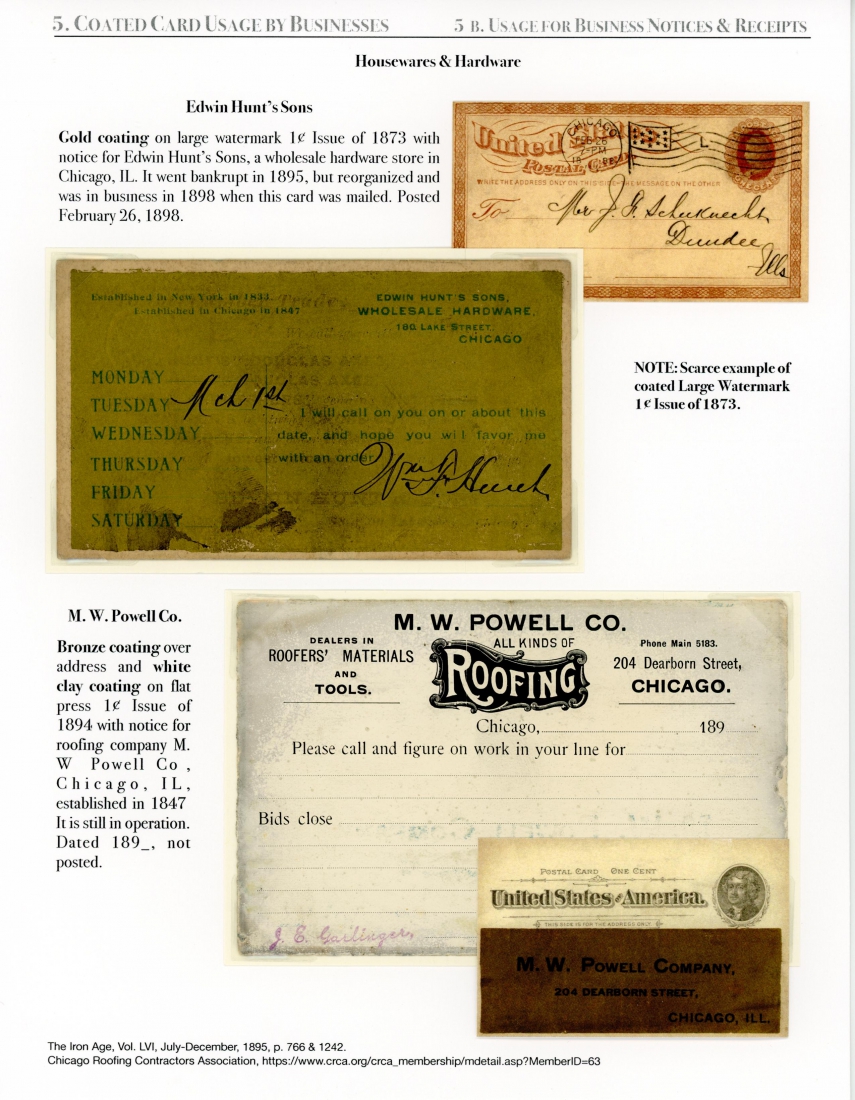 5. COATED CARD USAGE BY BUSINESSES
5 B. USAGE FOR BUSINESS NOTICES & RECEIPTS
Housewares & Hardware
Edwin Hunt's Sons
Gold coating on large watermark 1¢ Issue of 1873 with
notice for Edwin Hunt's Sons, a wholesale hardware store in
Chicago, IL. It went bankrupt in 1895, but reorganized and
was in business in 1898 when this card was mailed. Posted
February 26, 1898.
CHICAGO
FEB 26
PM
L
United States
POSTAL CARD
WRITE THE ADDRESS ONLY ON THIS SIDE-THE MESSAGE ON THE OTHER
To
Mr J. F. Schuknecht
Dundee
Ills
Established in New York in 1833.
Established in Chicago in 1847
EDWIN HUNT'S SONS,
WHOLESALE HARDWARE,
180 LAKE STREET,
CHICAGO
MONDAY
TUESDAY
WEDNESDAY
THURSDAY
FRIDAY
SATURDAY
Mch 1st
I will call on you on or about this
date, and hope you will favor me
with an order
NOTE: Scarce example of
coated Large Watermark
1¢ Issue of 1873.
M. W. Powell Co.
Bronze coating over
address and white
clay coating on flat
press 1¢ Issue of
1894 with notice for
roofing company M.
W Powell Co ,
Chicago, IL,
established in 1847
It is still in operation.
Dated 189_, not
posted.
M. W. POWELL CO.
DEALERS IN
ROOFERS' MATERIALS
AND
TOOLS.
ALL KINDS OF
ROOFING
Phone Main 5183.
204 Dearborn Street,
CHICAGO.
Chicago, 189
Please call and figure on work in your line for
Bids close
J. E. Gailinger
POSTAL CARD ONE CENT
United States of America.
THIS SIDE IS FOR THE ADDRESS ONLY
M. W. POWELL COMPANY,
204 DEARBORN STREET,
CHICAGO, ILL.
The Iron Age, Vol. LVI, July-December, 1895, p. 766 & 1242.
Chicago Roofing Contractors Association, https://www.crca.org/crca_membership/mdetail.asp?MemberID=63